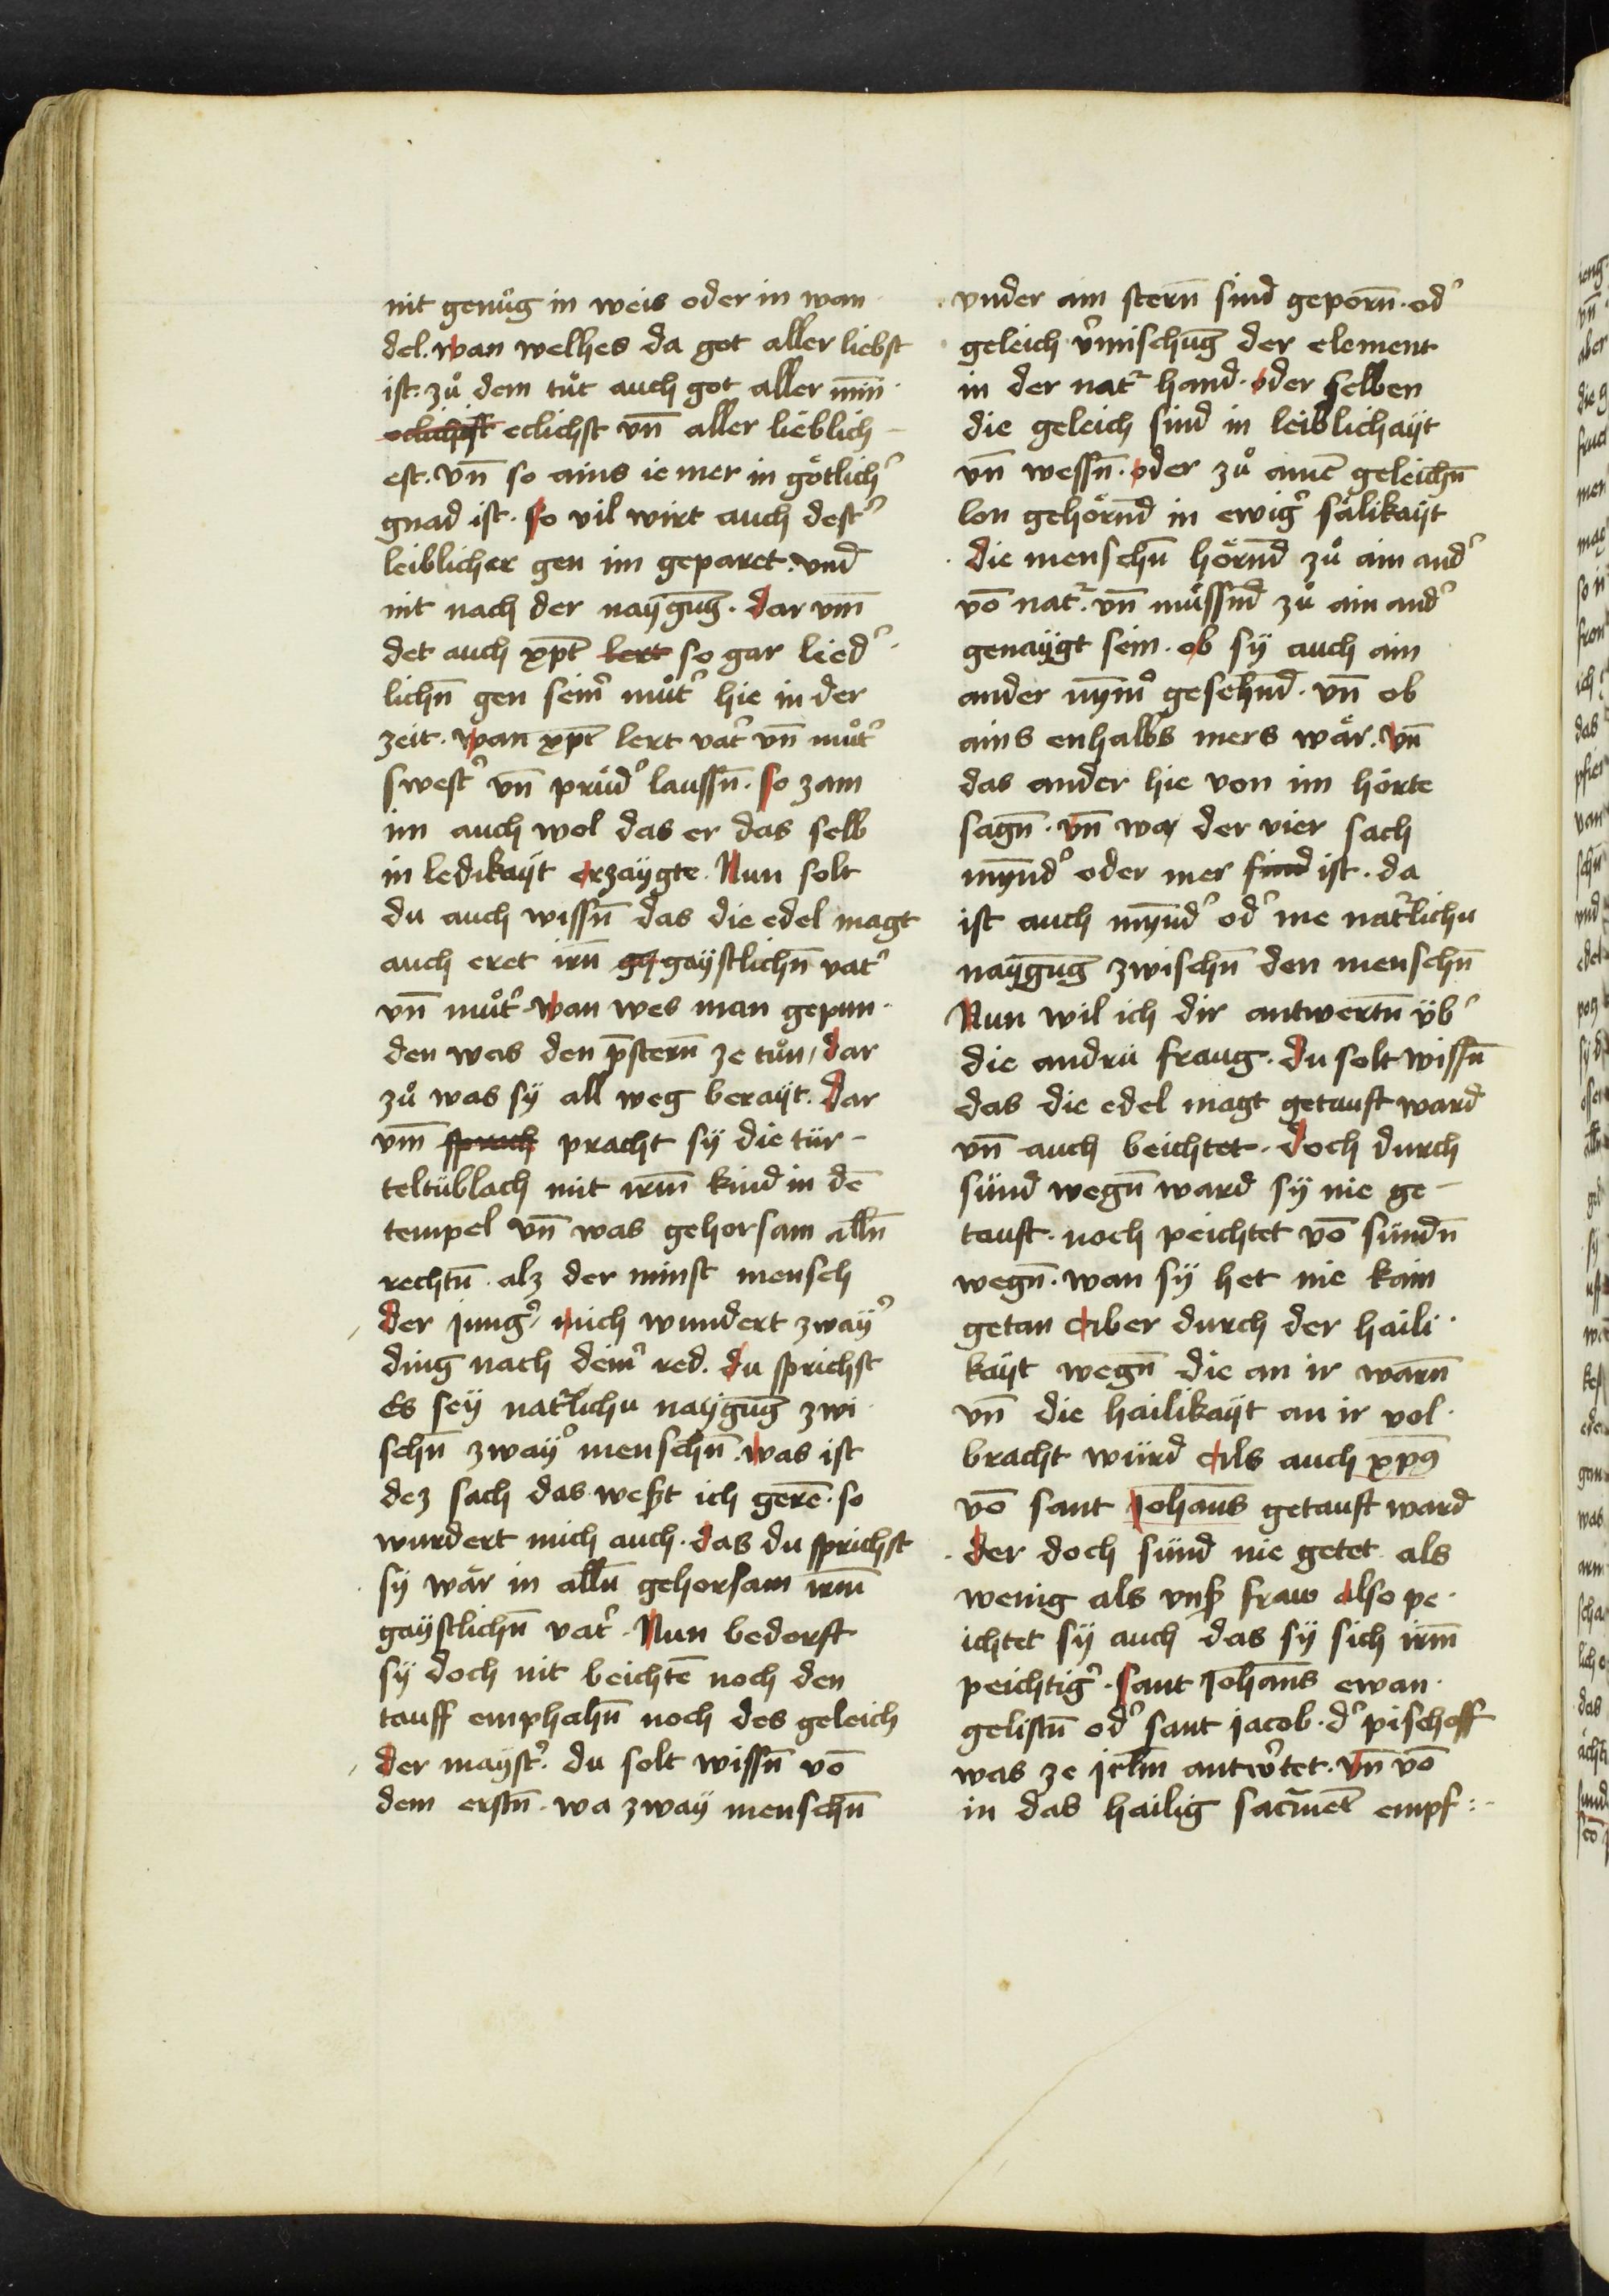 nit genůg in weis oder in wan
del. wan welhes da got aller liebst
ist. zů dem tůt auch got aller min̄
eclichst eclichst vn̄ aller lieblich-
est. vn̄ so ains ie mer in götlich᾽
gnad ist. so vil wirt auch dest᾽
leiblicher gen im geparet. vnd
nit nach der naygūg. dar vm̄
det auch xp̄t lert so gar lied᾽
lichn̄ gen sein᾽ můt᾽ hie in der
zeit. wan xp̄t lert vat᾽ vn̄ můt᾽
swest᾽ vn̄ prüd᾽ laussn̄. so zam
im auch wol das er das selb
in ledikayt erzaygte. Nun solt
du auch wissn̄ das die edel magt
auch eret irn̄ gey gaystlichn̄ vat᾽
vn̄ můt᾽. wan wes man gepun
den was den p̄stern̄ ze tůn, dar
zů was sy all weg berayt. dar
vm̄ sprach pracht sy die tür-
teltüblach mit irm̄ kind in dē
tempel vn̄ was gehorsam alln̄
rechtn̄. alz der minst mensch
der jung᾽, mich wundert zway᾽
ding nach dein᾽ red. du sprichst
Es sey nat᾽lichu naygūg zwi
schn̄ zway᾽ menschn̄. was ist
dez sach das west ich gerē. so
wundert mich auch. das du sprichst
sy wär in alln̄ gehorsam irm̄
gaystlichn̄ vat᾽. Nun bedorft
sy doch nit beichtē noch den
tauff emphahn̄ noch des geleich
der mayst᾽. du solt wissn̄ vō
dem erstn̄. wa zway menschn̄
vnder aim stern̄ sind geporn̄. od᾽
geleich v᾽mischūg der element
in der nat᾽ hand. oder selben
die geleich sind in leiblichayt
vn̄ wessn̄. oder zů ainē geleichn̄
lon gehörnd in ewig᾽ sälikayt
die menschn̄ hörnd zů ain and᾽
vō nat᾽. vn̄ müssnd zů ain and᾽
genaygt sein. ob sy auch ain
ander nym᾽ gesehnd. vn̄ ob
ains enhalbs mers wär. vn̄
das ander hie von im hörte
sagn̄. vn̄ wa der vier sach
mynd᾽ oder mer sind ist. da
ist auch mynd᾽ od᾽ me nat᾽lichu
naygūg zwischn̄ den menschn̄
Nun wil ich dir antwertn̄ üb᾽
die andrü fraug. du solt wissn̄
das die edel magt getauft ward
vn̄ auch beichtet. doch durch
sünd wegn̄ ward sy nie ge-
tauft. noch peichtet vō sündn̄
wegn̄. wan sy het nie kain
getan aber durch der haili
kayt wegn̄ die an ir warn̄
vn̄ die hailikayt an ir vol
bracht würd als auch xp̄9
vō sant Johans getauft ward
der doch sünd nie getet. als
wenig als vnß fraw also pe
ichtet sy auch das sy sich irm̄
peichtig᾽. sant Johans ewan
gelistn̄ od᾽ sant jacob. d᾽ pischoff
was ze jrlm̄ antw᾽tet. vn̄ vō
in das hailig sacrmēt empf